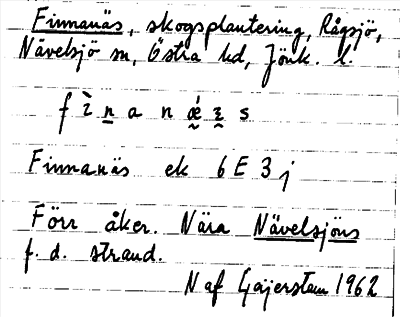 Finnanäs, skogsplantering, Rågsjö,
Nävelsjö sn, Östra hd, Jönk. l.
Finnanäs ek 6 E 3 j
Förr åker. Nära Nävelsjöns
f. d. strand.
N af Gajerstam 1962